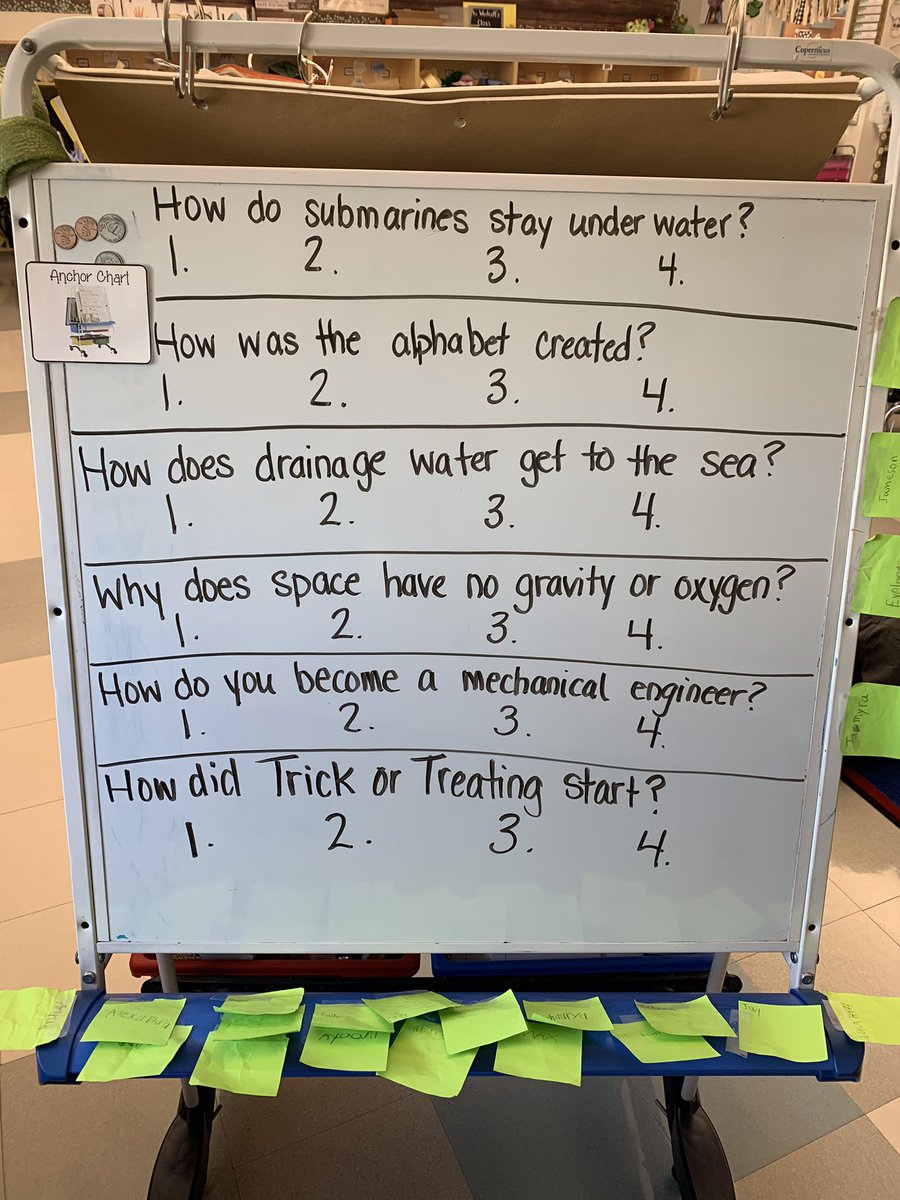 Copernicus
How do submarines stay under water?
1. 2. 3. 4.
Anchor Chart
How was the alphabet created?
1. 2. 3. 4.
How does drainage water get to the sea?
1. 2. 3. 4.
Why does space have no gravity or oxygen?
1. 2. 3. 4.
How do you become a mechanical engineer?
1. 2. 3. 4.
How did Trick or Treating start?
1. 2. 3. 4.
Jameson
Alexandra
Jay